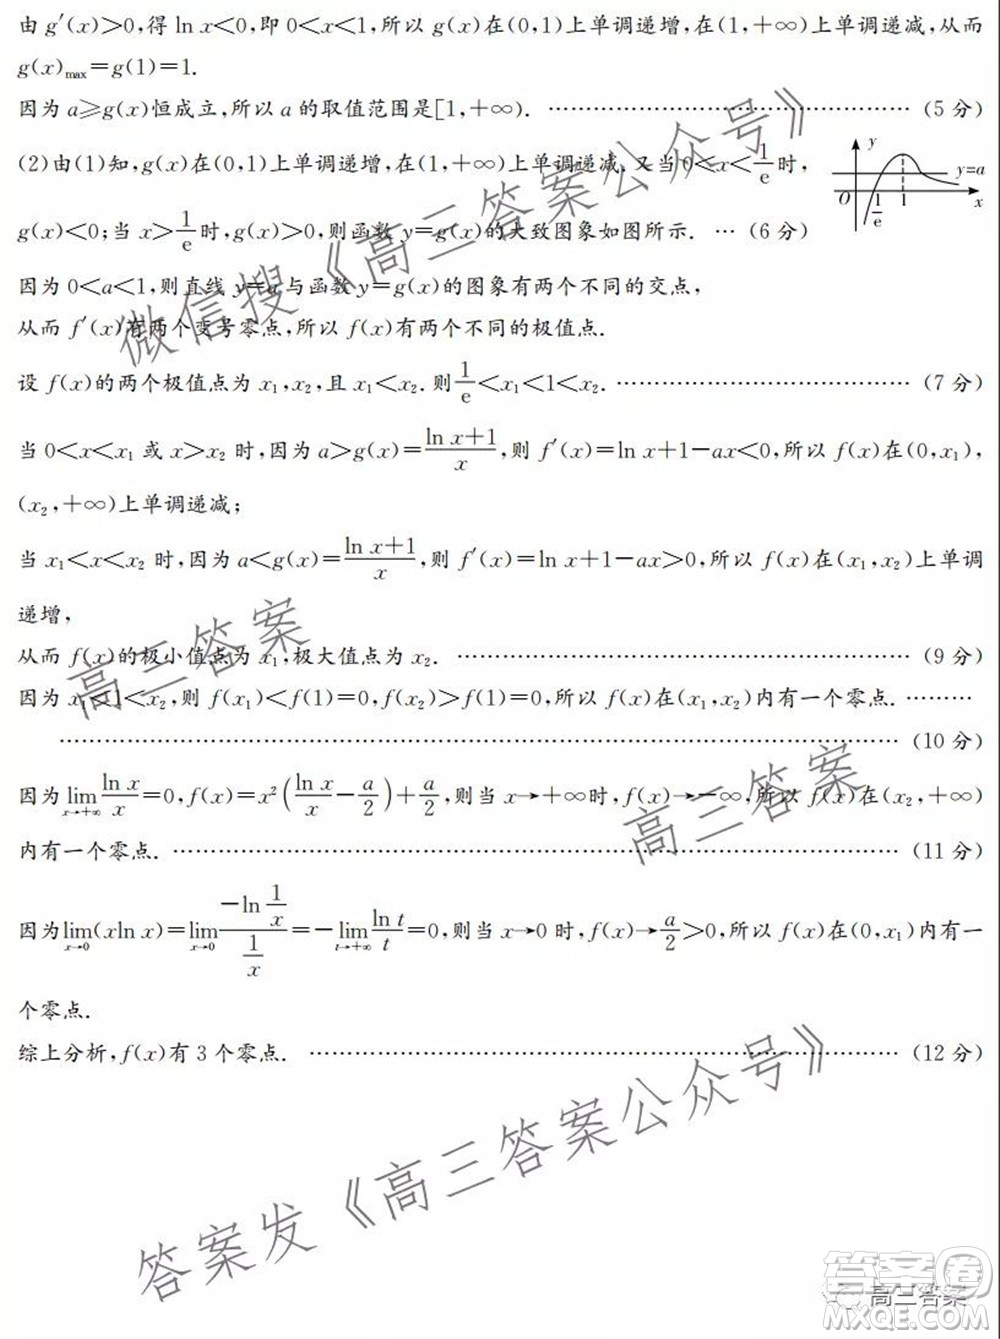 由 g′(x)>0,得 ln x<0,即 0<x<1,所以 g(x)在(0,1)上单调递增,在(1,+∞)上单调递减,从而
g(x)max=g(1)=1.
因为 a≥g(x)恒成立,所以 a 的取值范围是[1,+∞). ……………………………………… (5 分)
(2)由(1)知,g(x)在(0,1)上单调递增,在(1,+∞)上单调递减. 又当 0<x<1/e 时,
y
y=a
O
1/e
1
x
g(x)<0;当 x>1/e 时,g(x)>0,则函数 y=g(x)的大致图象如图所示. … (6 分)
因为 0<a<1,则直线 y=a 与函数 y=g(x)的图象有两个不同的交点,
从而 f′(x)有两个变号零点,所以 f(x)有两个不同的极值点.
设 f(x)的两个极值点为 x₁,x₂,且 x₁<x₂. 则 1/e<x₁<1<x₂. ……………………………… (7 分)
当 0<x<x₁ 或 x>x₂ 时,因为 a>g(x)=(ln x+1)/x,则 f′(x)=ln x+1-ax<0,所以 f(x)在(0,x₁),
(x₂,+∞)上单调递减;
当 x₁<x<x₂ 时,因为 a<g(x)=(ln x+1)/x,则 f′(x)=ln x+1-ax>0,所以 f(x)在(x₁,x₂)上单调
递增,
从而 f(x)的极小值点为 x₁,极大值点为 x₂. ……………………………………………… (9 分)
因为 x₁<1<x₂,则 f(x₁)<f(1)=0,f(x₂)>f(1)=0,所以 f(x)在(x₁,x₂)内有一个零点. ………
……………………………………………………………………………………… (10 分)
因为 lim(x→+∞) ln x/x=0,f(x)=x²(ln x/x-a/2)+a/2,则当 x→+∞时,f(x)→-∞,所以 f(x)在(x₂,+∞)
内有一个零点. ……………………………………………………………………………… (11 分)
因为 lim(x→0)(xln x)=lim(x→0) (-ln 1/x)/(1/x)=-lim(t→+∞) ln t/t=0,则当 x→0 时,f(x)→a/2>0,所以 f(x)在(0,x₁)内有一
个零点.
综上分析,f(x)有 3 个零点. ……………………………………………………………… (12 分)
微信搜《高三答案公众号》
高三答案
高三答案
答案发《高三答案公众号》
答案圈
高三答案